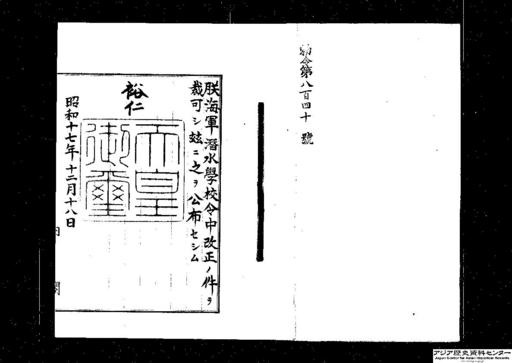 勅令第八百四十號
朕海軍潛水學校令中改正ノ件ヲ
裁可シ玆ニ之ヲ公布セシム
裕仁
天皇
御璽
昭和十七年十二月十八日
内閣
アジア歴史資料センター
Japan Center for Asian Historical Records